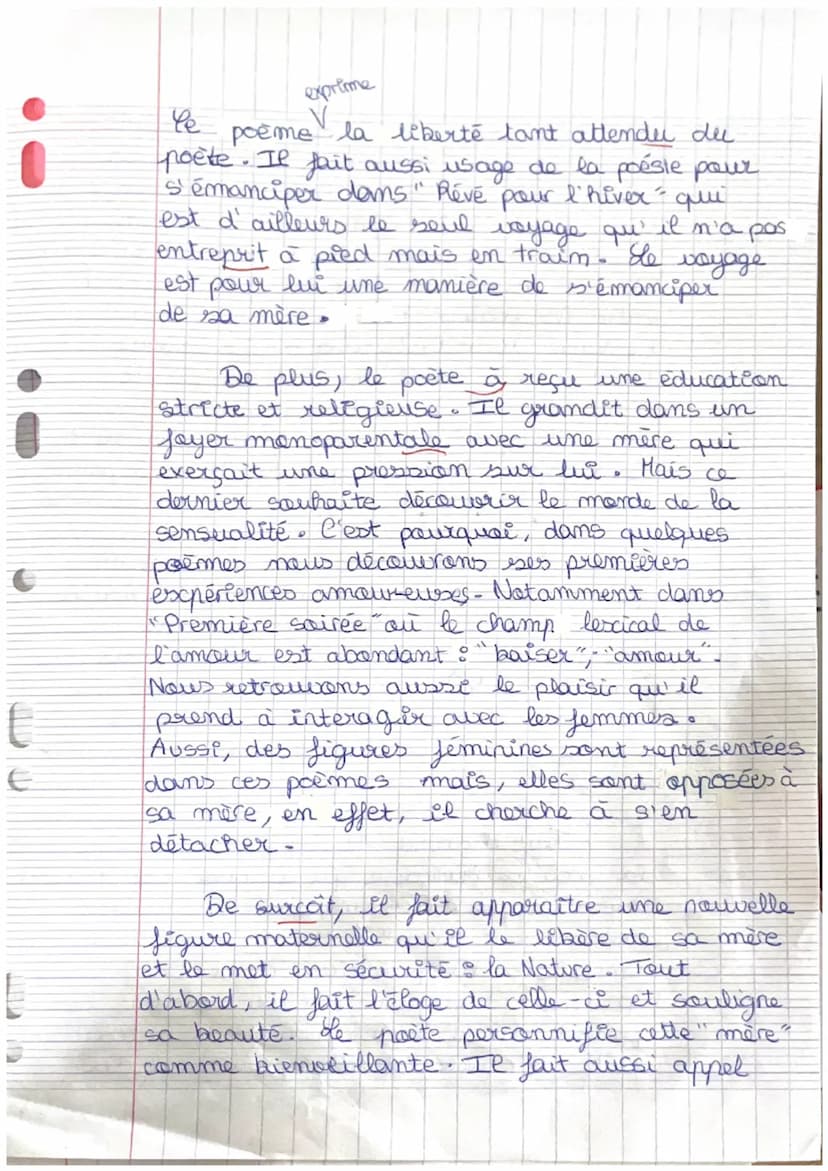 exprime
Le poème la liberté tant attendu du
poète. Il fait aussi usage de la poésie pour
s'émanciper dans "Rêvé pour l'hiver" qui
est d'ailleurs le seul voyage qu'il n'a pas
entreprit à pied mais en train. Le voyage
est pour lui une manière de s'émanciper
de sa mère.
De plus, le poète à reçu une éducation
stricte et religieuse. Il grandit dans un
foyer monoparentale avec une mère qui
exerçait une pression sur lui. Mais ce
dernier souhaite découvrir le monde de la
sensualité. C'est pourquoi, dans quelques
poèmes nous découvrons ses premières
expériences amoureuses. Notamment dans
"Première soirée" où le champ lexical de
l'amour est abondant : "baiser"; "amour".
Nous retrouvons aussi le plaisir qu'il
prend à interagir avec les femmes.
Aussi, des figures féminines sont représentées
dans ces poèmes mais, elles sont opposées à
sa mère, en effet, il cherche à s'en
détacher.
De surcoît, il fait apparaître une nouvelle
figure maternelle qu'il le libère de sa mère
et le met en sécurité : la Nature. Tout
d'abord, il fait l'éloge de celle-ci et souligne
sa beauté. Le poète personnifie cette "mère"
comme bienveillante. Il fait aussi appel